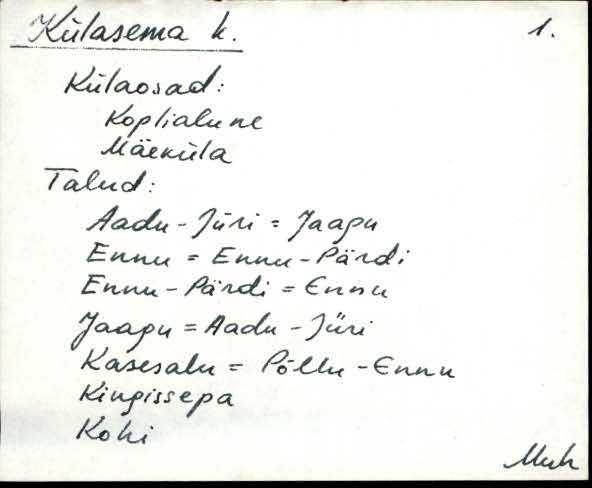 Külasema k. 1.
Külaosad:
Koplialune
Mäeküla
Talud:
Aadu-Jüri = Jaagu
Ennu = Ennu-Pärdi
Ennu-Pärdi = Ennu
Jaagu = Aadu-Jüri
Kasesalu = Põllu-Ennu
Kingissepa
Kohi
Muh